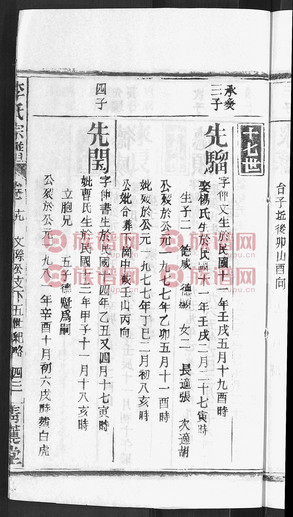 台子坵後卯山酉向
十七世
承癸
三子
先騮
字仲文生於民國十一年壬戌五月十九酉時
娶楊氏生於民國十一年壬戌二月二十七寅時
生子二 德威 德 女二 長適張 次適胡
公歿於公元一九七七年乙卯五月十一酉時
妣歿於公元一九七七年丁巳二月初八亥時
公妣合葬 崗中嶔壬山丙向
四子
先閏
字仲書生於民國十四年乙丑又四月十七寅時
妣曹氏生於民國十三年甲子十一月十八亥時
立胞兄 五子德 爲嗣
公歿於公元一九八一年辛酉十月初六戌時 白虎
李氏宗譜 卷之九 文 公支下五世紀略 四三 青蓮堂
族譜網